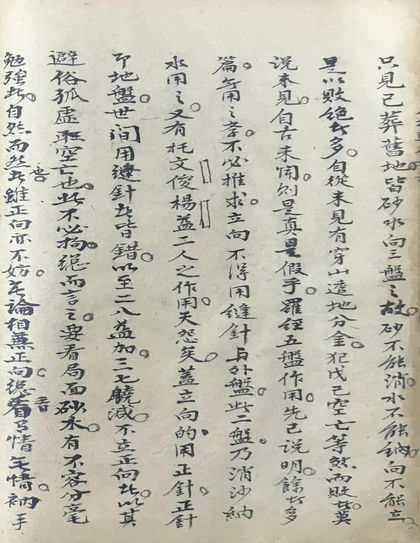 只見已葬舊地皆砂水向三盤之故。砂不能消水不能納向不能立
是以敗絕者多。自從未見有穿山透地分金犯戊己空亡等煞而敗者莫
說未見。自古未聞。則是真是假乎。羅經五盤作用先已說明。餘者多
篇無用之李不必推求。立向不得用縫針与外盤。此二盤乃消沙納
水用之。又有托文俊楊益二人之作用。天怨矣。蓋立向的用正針正針
即地盤。世間用縫針者皆錯。以至二八益加三七饒減。不立正向者以其
避俗孤虛取空亡也。此不必拘總而言之。要看局面砂水。有不容分毫
勉強者。自然而然者雖正向亦不妨。無論相兼正向總看有情無情。衲手